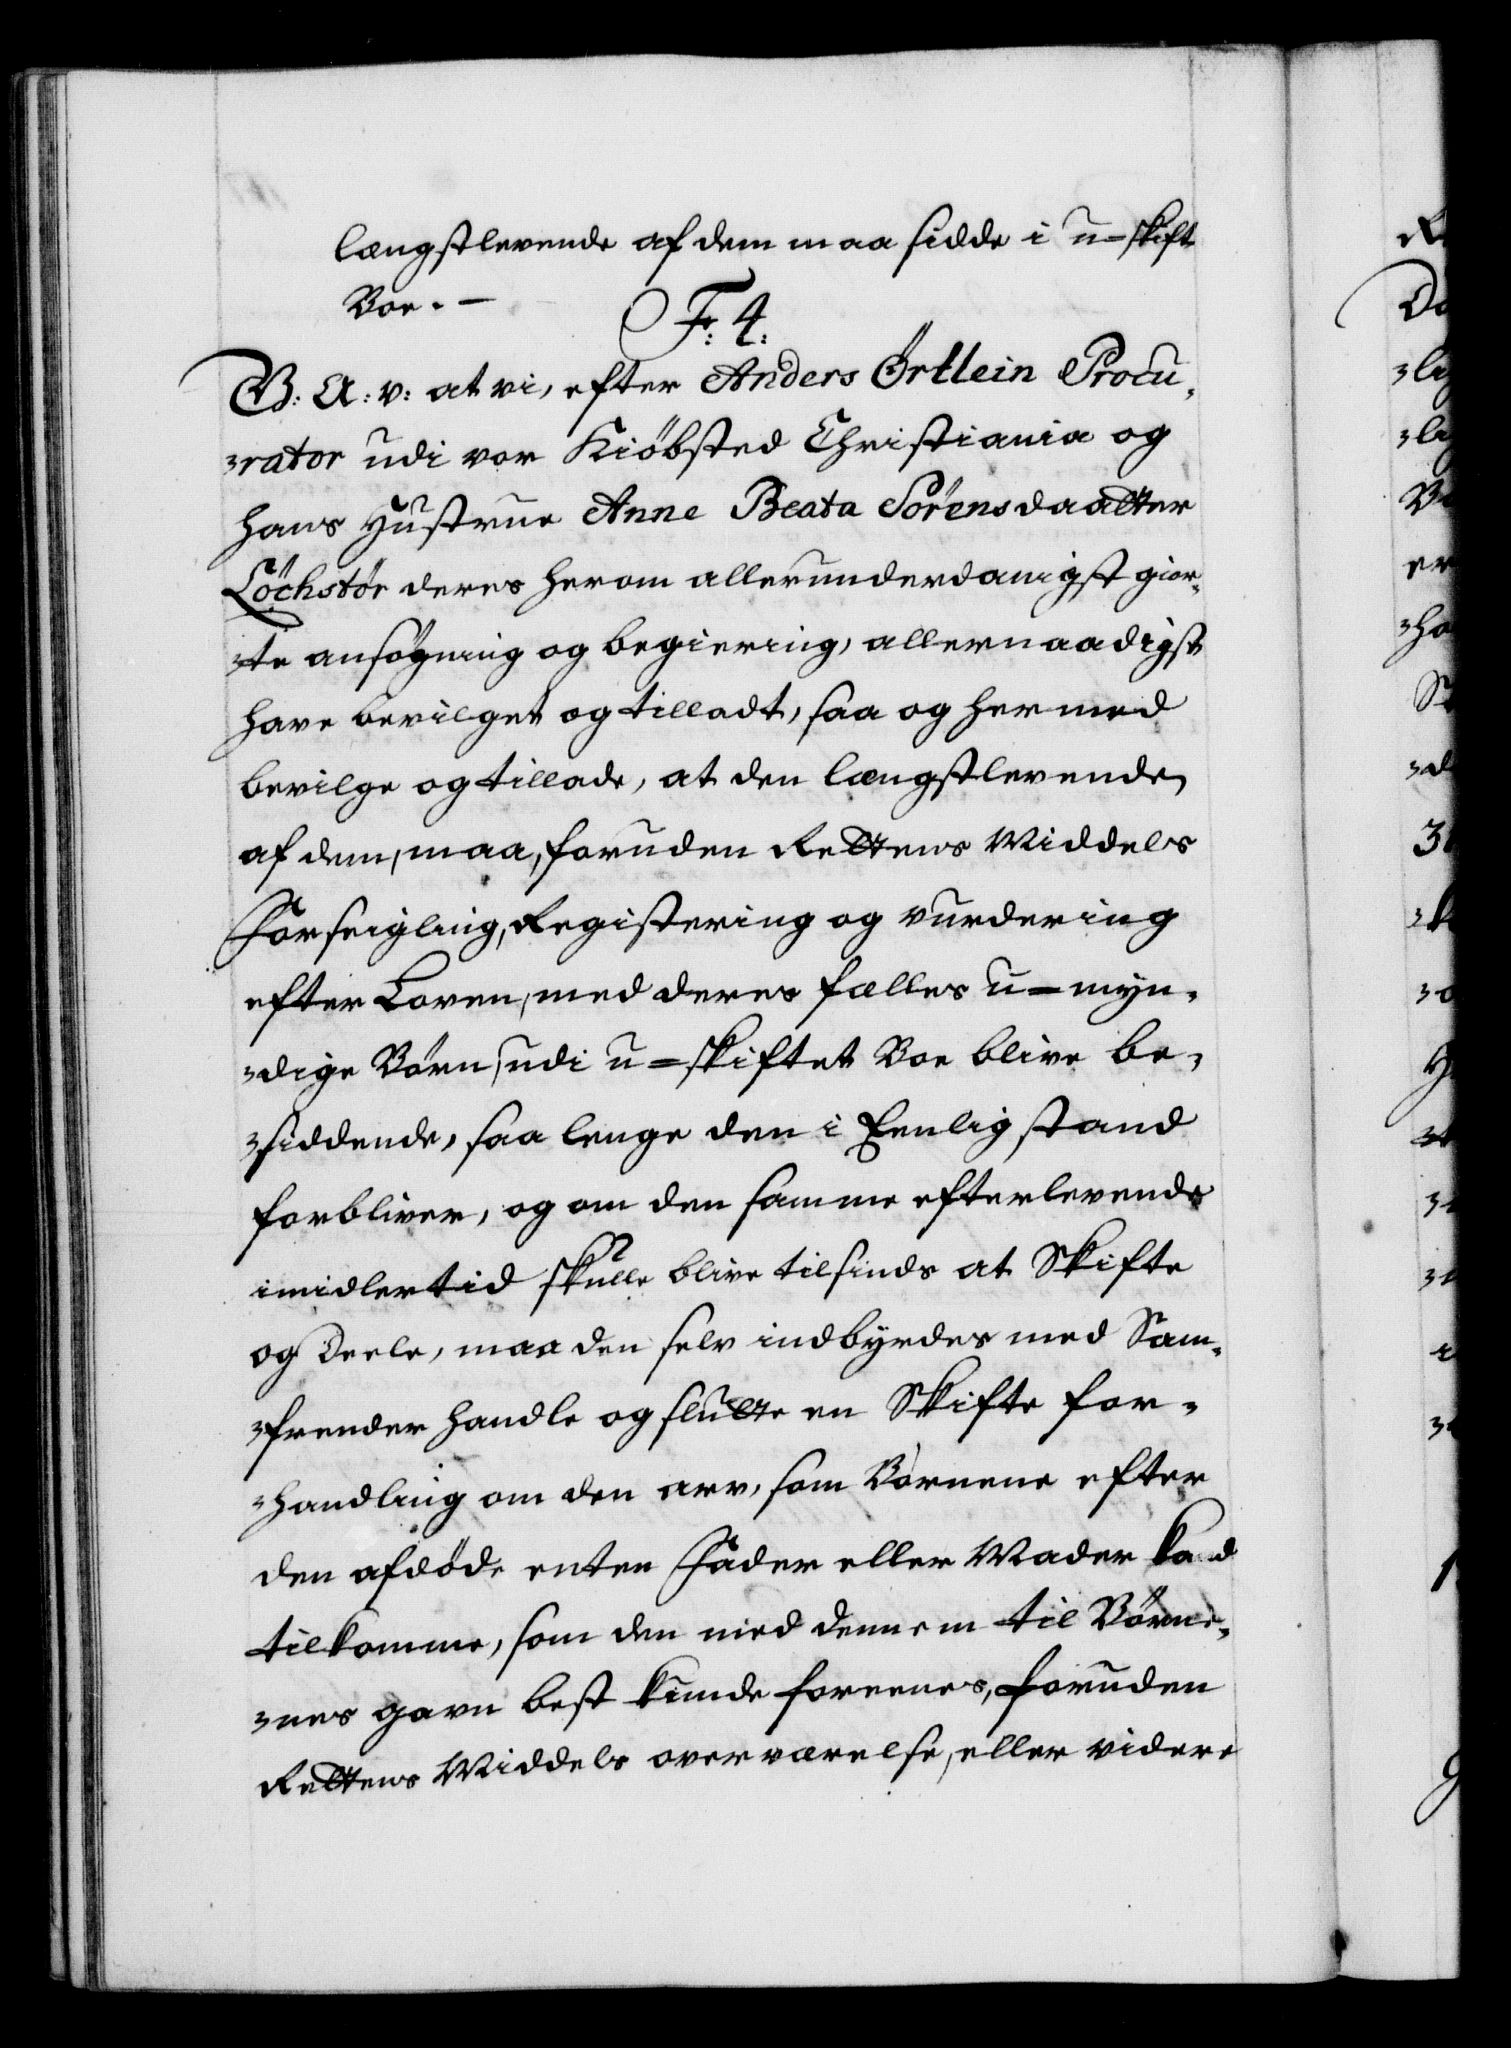 længstlevende af dem maa sidde i u-skift
Boe. –
Fr: 4:
G: A: v: at vi, efter Anders Örtlein Procu-
-rator udi vor Kiöbsted Christiania og
hans Hustrue Anne Beata Sörensdaatter
Löchstör deres herom allerunderdanigst gior-
-te ansögning og begiering, allernaadigst
have bevilget og tilladt, saa og hermed
bevilge og tillade, at den længstlevende
af dem, maa, foruden Rettens Middels
Forseigling, Registering og vurdering
efter Loven, med deres fælles u-myn-
-dige Börn, udi u-skiftet Boe blive be-
-siddende, saa lenge den i Eenlig stand
forbliver, og om den samme efterlevende
imidlertid skulle blive tilsinds at Skifte
og Deele, maa den selv indbyrdes med Sam-
-frender handle og slutte en Skifte for-
-handling om den arv, som Börnene efter
den afdöde enten Fader eller Moder kand
tilkomme, som den med dennem til Börne-
-nes gavn best kunde foreenes, foruden
Rettens Middels overværelse, eller videre